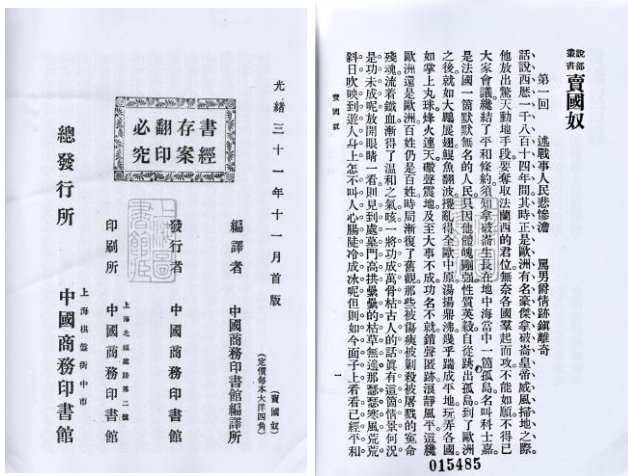 說部叢書 賣國奴
第一回 述戰事人民悲慘澹 罵男爵情跡鎭離奇
話說西歷一千八百十四年間其時正是歐洲有名豪傑拿破崙皇帝威風掃地之際。
他放出驚天動地手段要奪取法蘭西的君位無奈各國羣起而攻不能如願不得已
大家會議纔結了平和條約須知拿破崙生長在地中海當中一箇孤島名叫科士嘉
是法國一箇默默無名的人民只因他體魄剛强性質英毅自從跳出孤島到了歐洲
之後就如大鵬展翅鯤魚翻波攪亂得全歐中原湯揚鼎沸幾乎踹成平地玩弄各國
如掌上丸球烽火連天礮聲震地及至大事不成功名不就銷聲匿跡浪靜風平這纔
歐洲還是歐洲百姓仍是百姓時局漸復了舊觀那些被傷痍被剿殺被屠戮的寃命
殘魂流着鐵血漸得了溫和之氣咳一將功成萬骨枯古人的話眞有這箇情景何况
是功未成呢放開眼睛一看則見到處墓門高拱纍纍的枯草無邊那瑟瑟寒風荒荒
斜日吹映到遊人身上怎不叫人心腸陡冷成冰呢但則如今面子上看看已經平和
賣國奴
一
015485
光緒三十一年十一月首版
書經存案翻印必究
(賣國奴)
(定價每本大洋四角)
編譯者 中國商務印書館編譯所
發行者 中國商務印書館
上海北福建路第二號
印刷所 中國商務印書館
上海棋盤街中市
總發行所 中國商務印書館